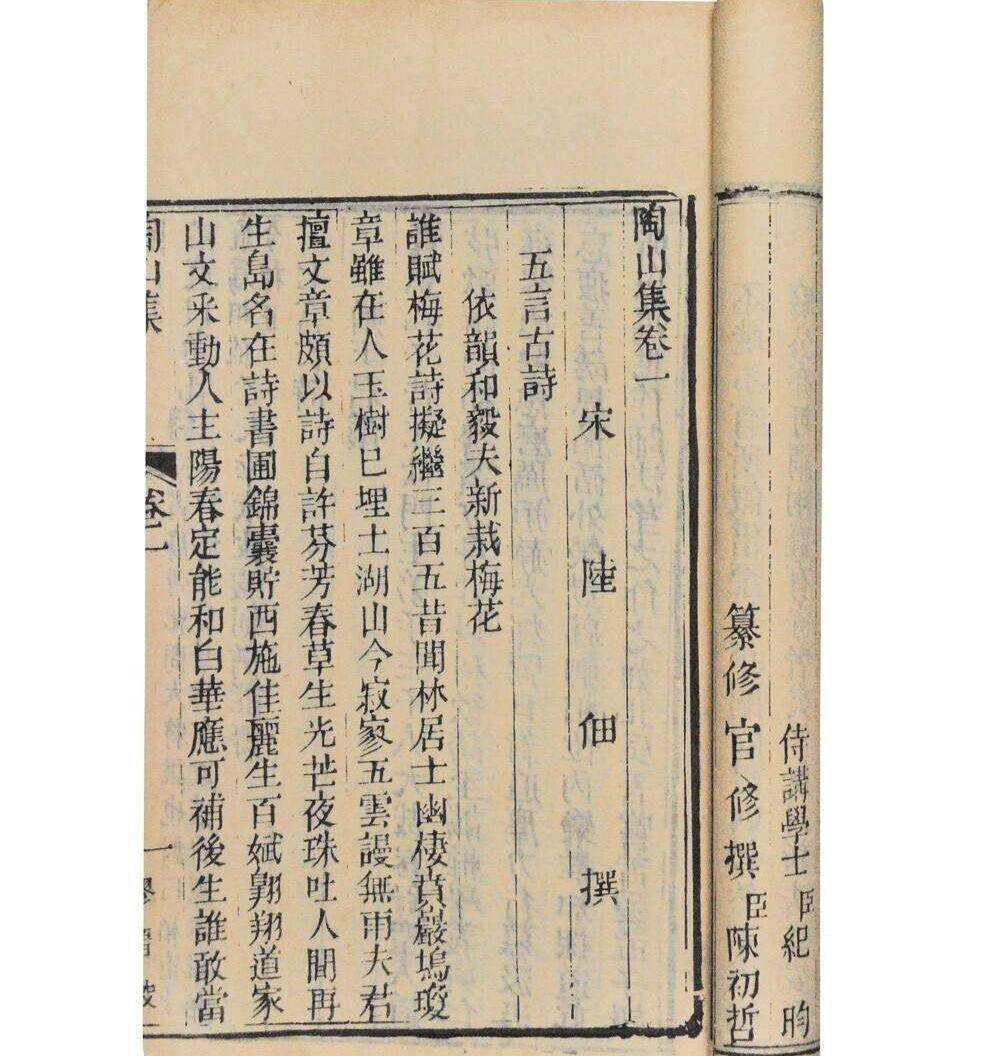 侍講學士臣紀昀
纂修官修撰臣陳初哲
陶山集卷一
宋陸佃撰
五言古詩
依韻和毅夫新栽梅花
誰賦梅花詩擬繼三百五昔聞林居士幽棲賁巖塢瓊
章雖在人玉樹已埋土湖山今寂寥五雲謾無雨夫君
擅文章頗以詩自許芬芳春草生光芒夜珠吐人間再
生島名在詩書圃錦囊貯西施佳麗生百斌翺翔道家
山文采動人主陽春定能和白華應可補後生誰敢當
陶山集 卷一 一